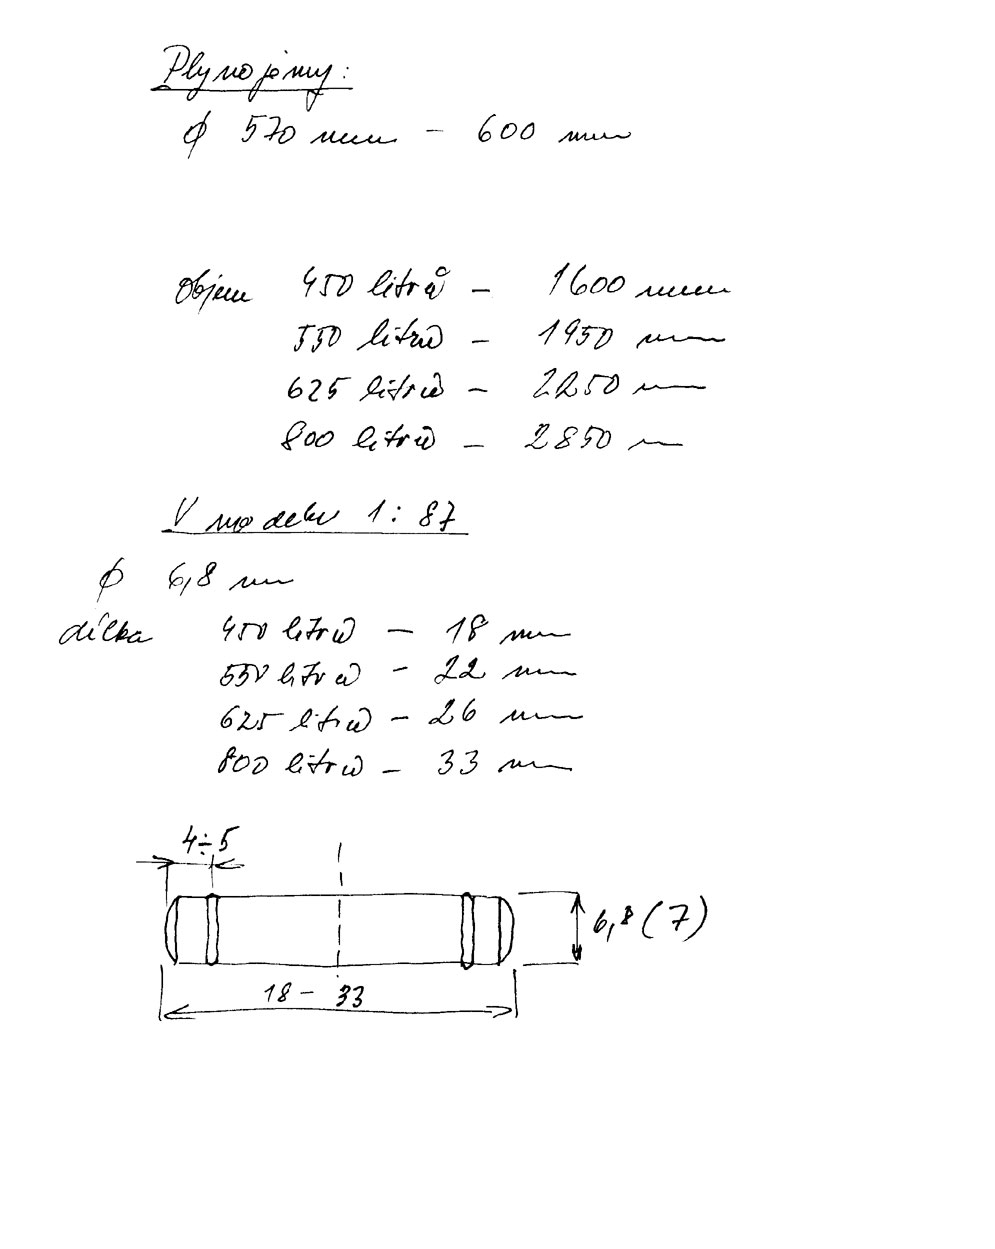 Plynojemy:
ϕ 570 mm - 600 mm
Objem 450 litrů - 1600 mm
550 litrů - 1950 mm
625 litrů - 2250 mm
800 litrů - 2850 mm
V modelu 1:87
ϕ 6,8 mm
délka 450 litrů - 18 mm
550 litrů - 22 mm
625 litrů - 26 mm
800 litrů - 33 mm
4÷5
6,8 (7)
18 - 33